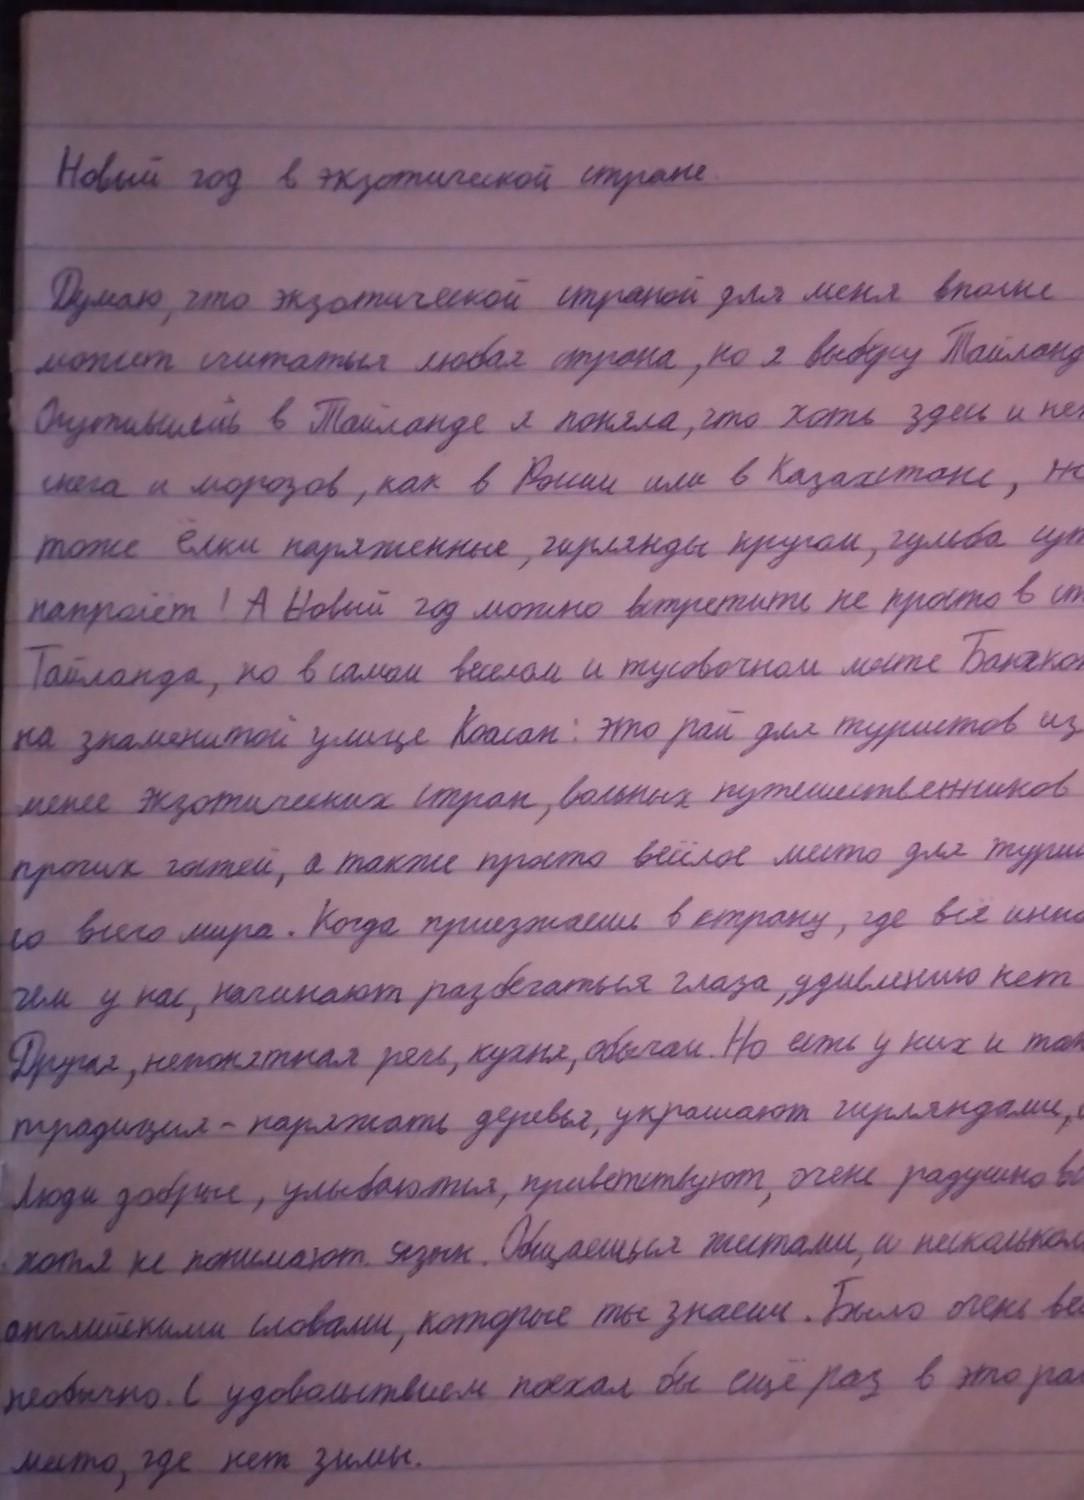 Новый год в экзотической стране.
Думаю, что экзотической страной для меня вполне
может считаться любая страна, но я выберу Тайланд
в Тайланде я поняла, что хоть здесь и нет
снега и морозов, как в России или в Казахстане,
тоже ёлки наряженные, гирлянды кругом, гульба
напролёт! А Новый год можно встретить не просто в
Тайланда, но в самом веселом и тусовочном месте
на знаменитой улице Каосан: это рай для туристов из
менее экзотических стран, вольных путешественников
прочих гостей, а также просто весёлое место для
со всего мира. Когда приезжаешь в страну, где всё
чем у нас, начинают разбегаться глаза, удивлению нет
Другая, непонятная речь, кухня, обычаи. Но есть у них и
традиция - наряжать деревья, украшают гирляндами,
Люди добрые, улыбаются, приветствуют, очень радушно
хотя не понимают язык. Общаешься жестами, и
английскими словами, которые ты знаешь. Было очень
необычно. С удовольствием поехал бы ещё раз в это
место, где нет зимы.